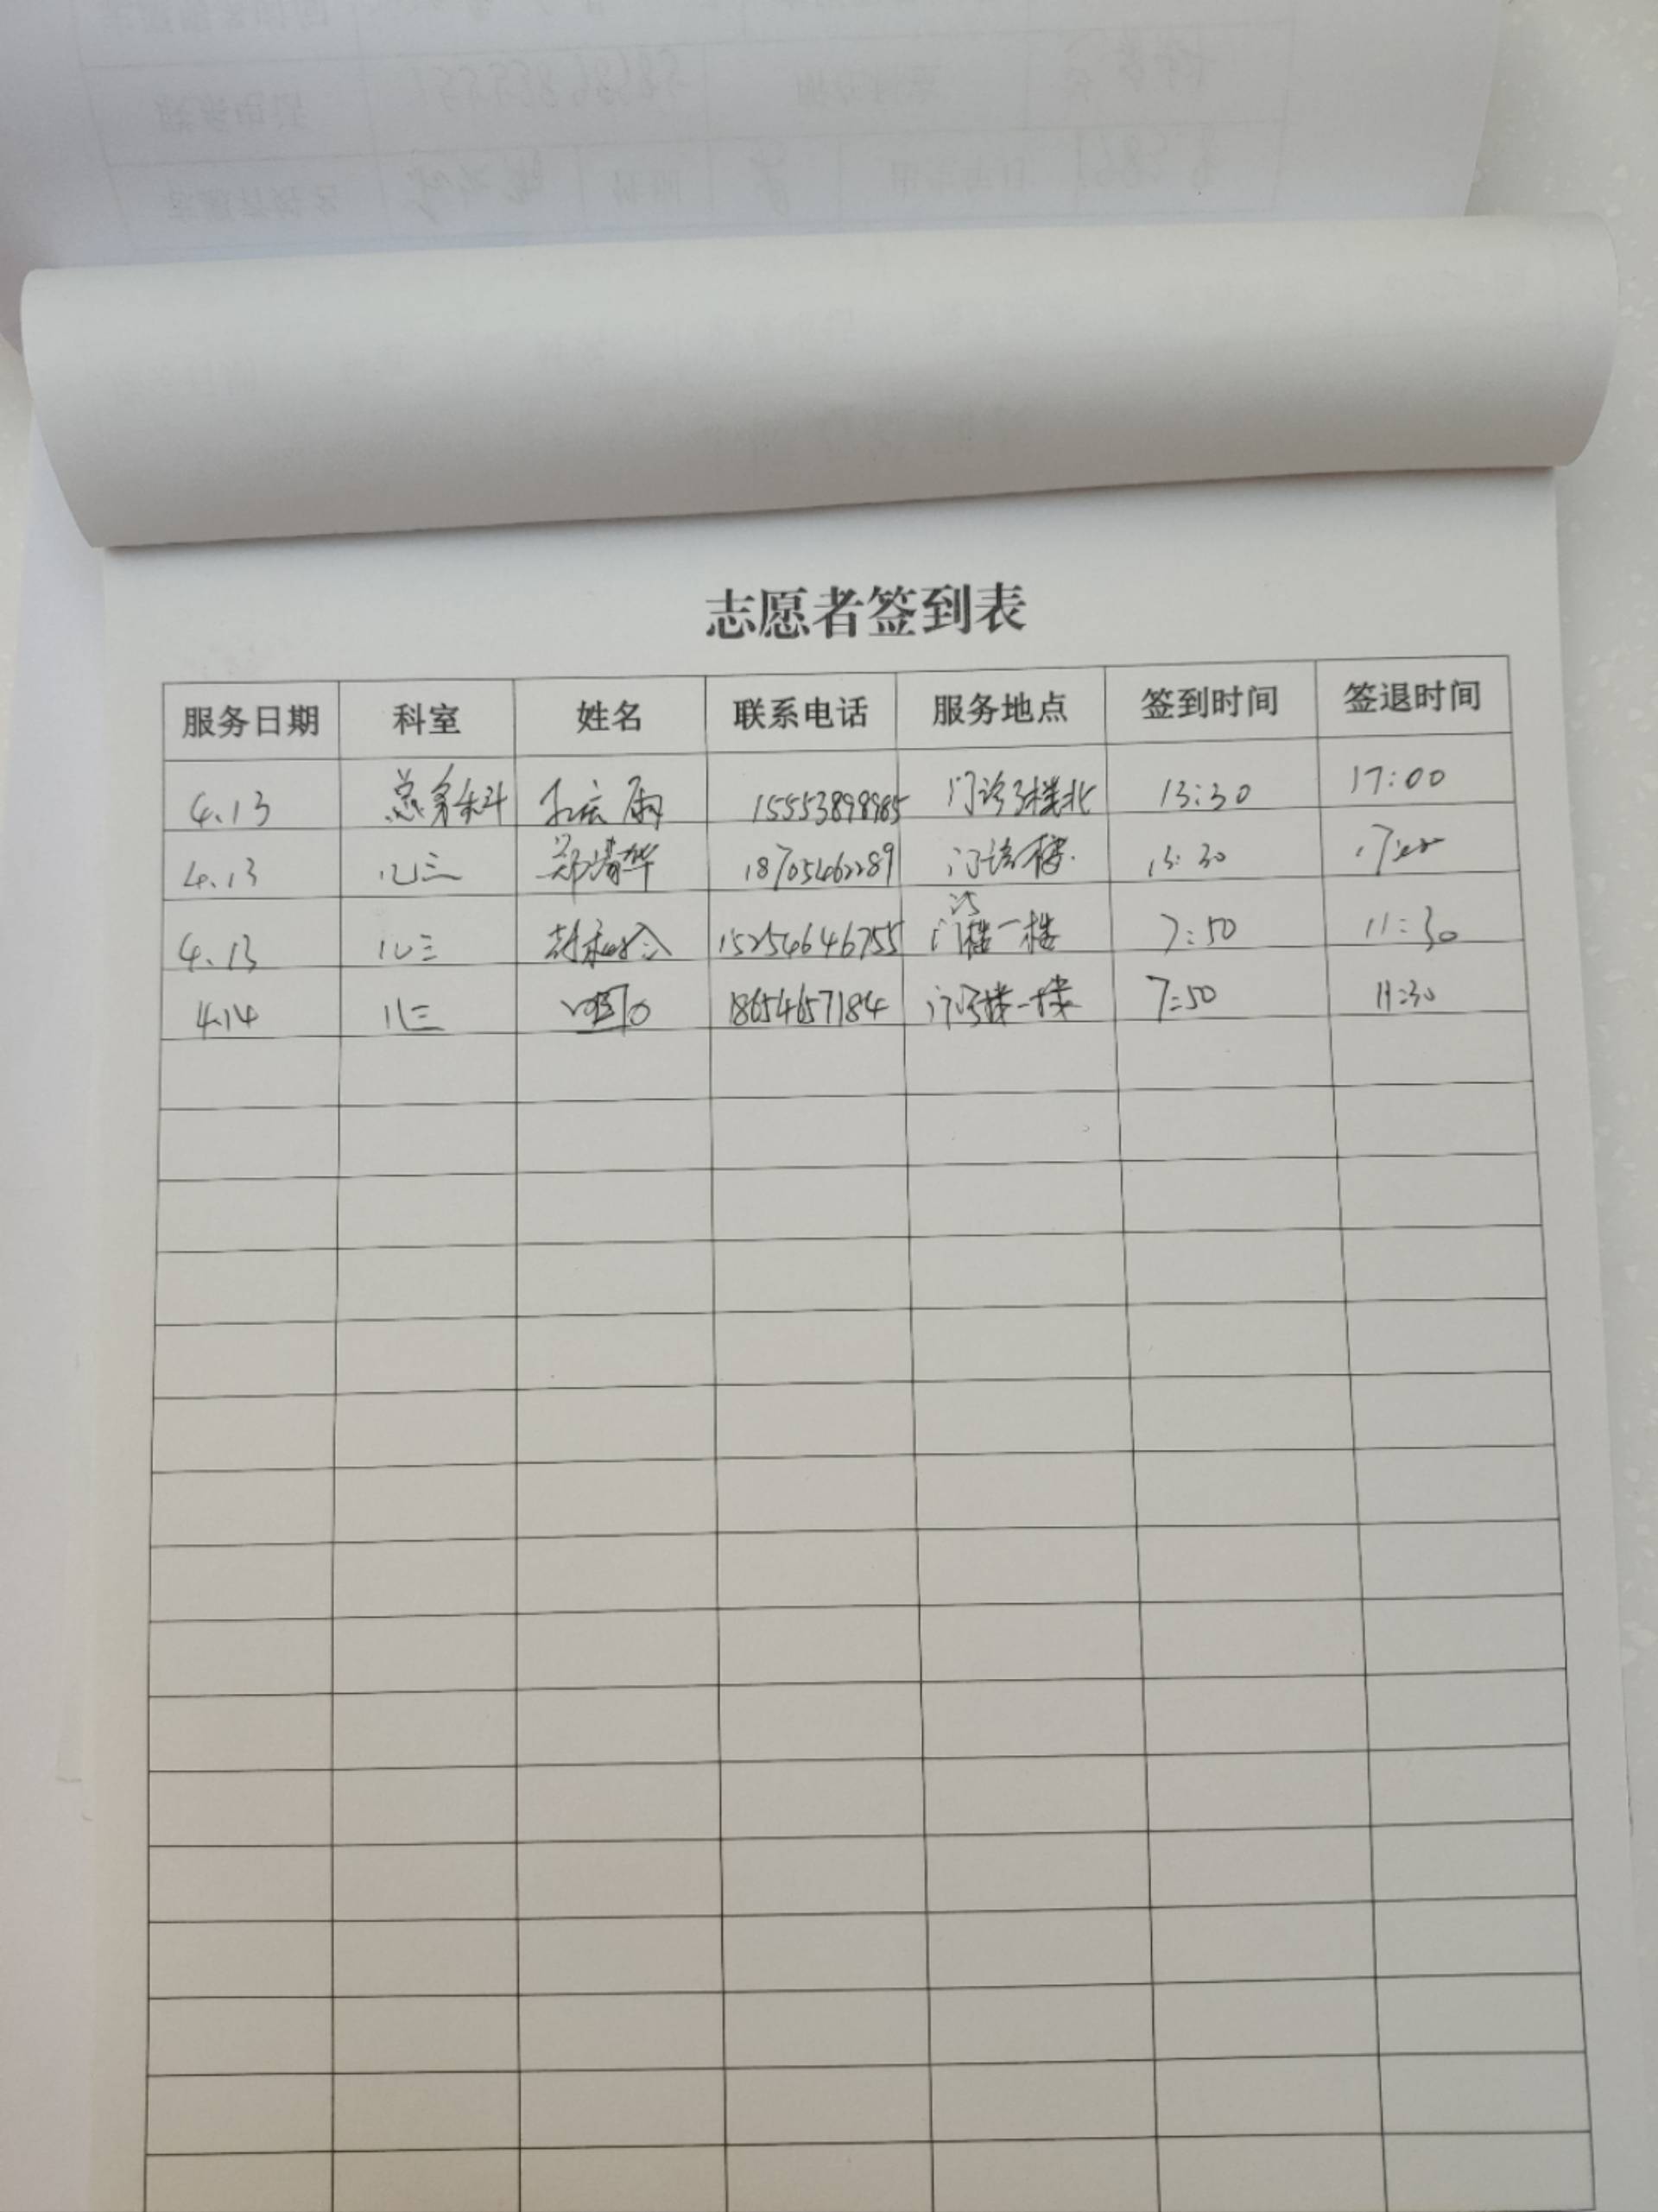 志愿者签到表
服务日期 科室 姓名 联系电话 服务地点 签到时间 签退时间
4.13 总务科 15553898985 门诊3楼北 13:30 17:00
4.13 心三 郑清华 18705462289 门诊楼 13:30
4.13 心三 15254646755 门诊楼一楼 7:50 11:30
4.14 心三 18654657184 门诊楼一楼 7:50 11:30